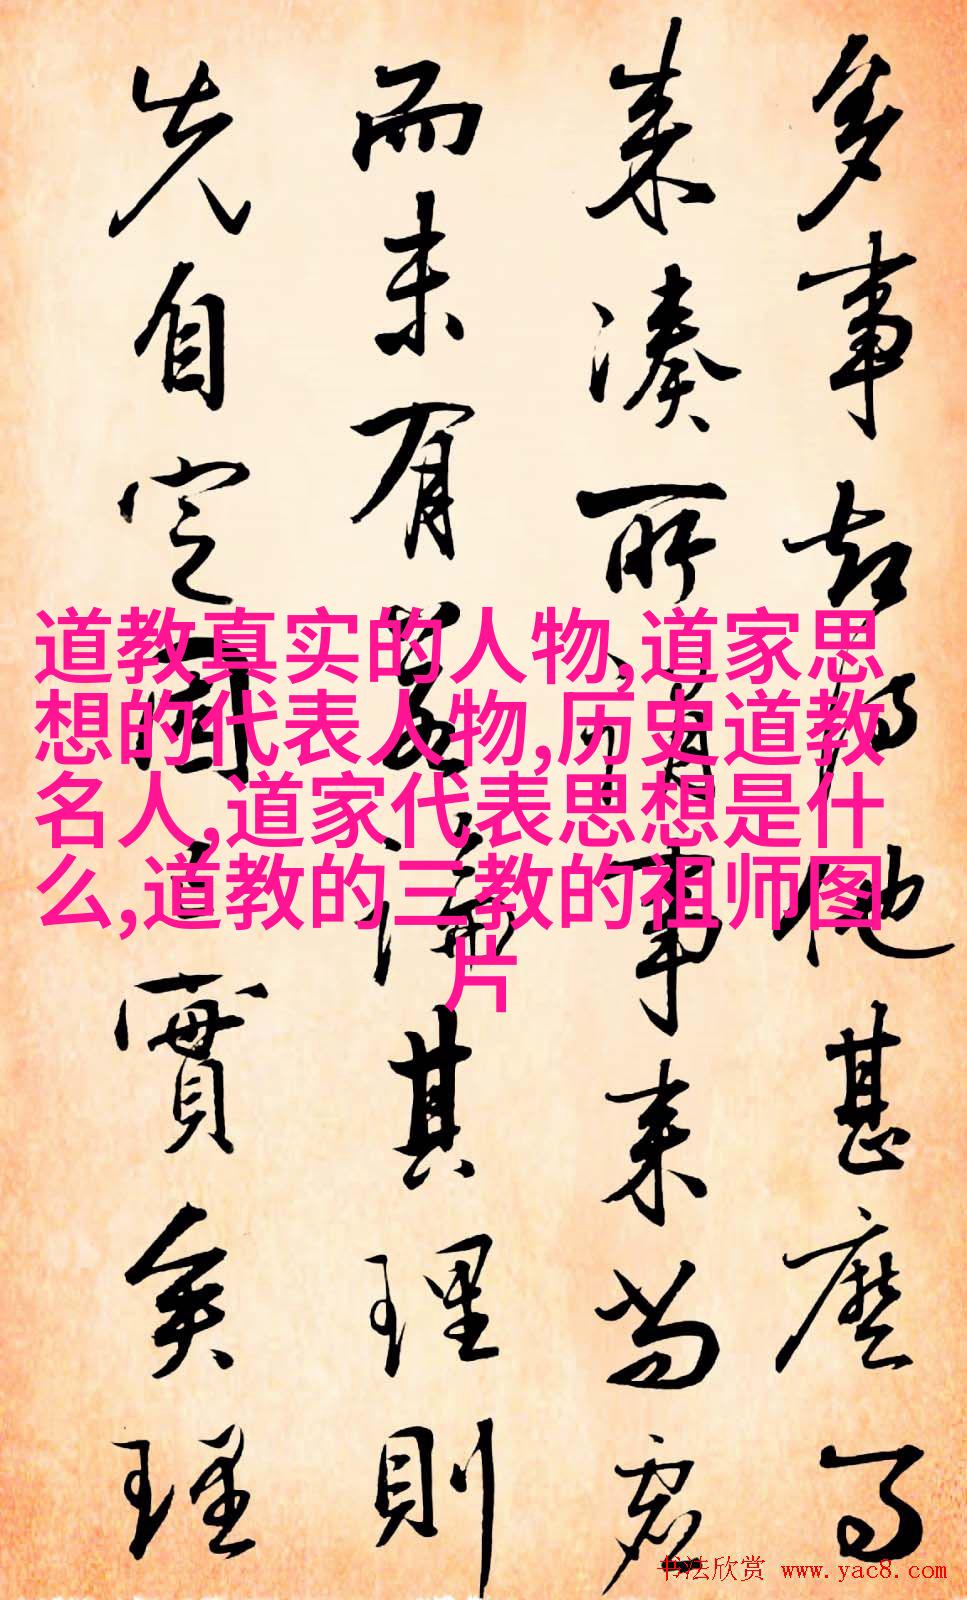 多事却他甚麼
来湊所謂事来
而未有其理則
先自定固已實矣理
道教真实的人物,道家思
想的代表人物,历史道教
名人,道家代表思想是什
么,道教的三教的祖师图
片
书法欣赏 www.yac8.com